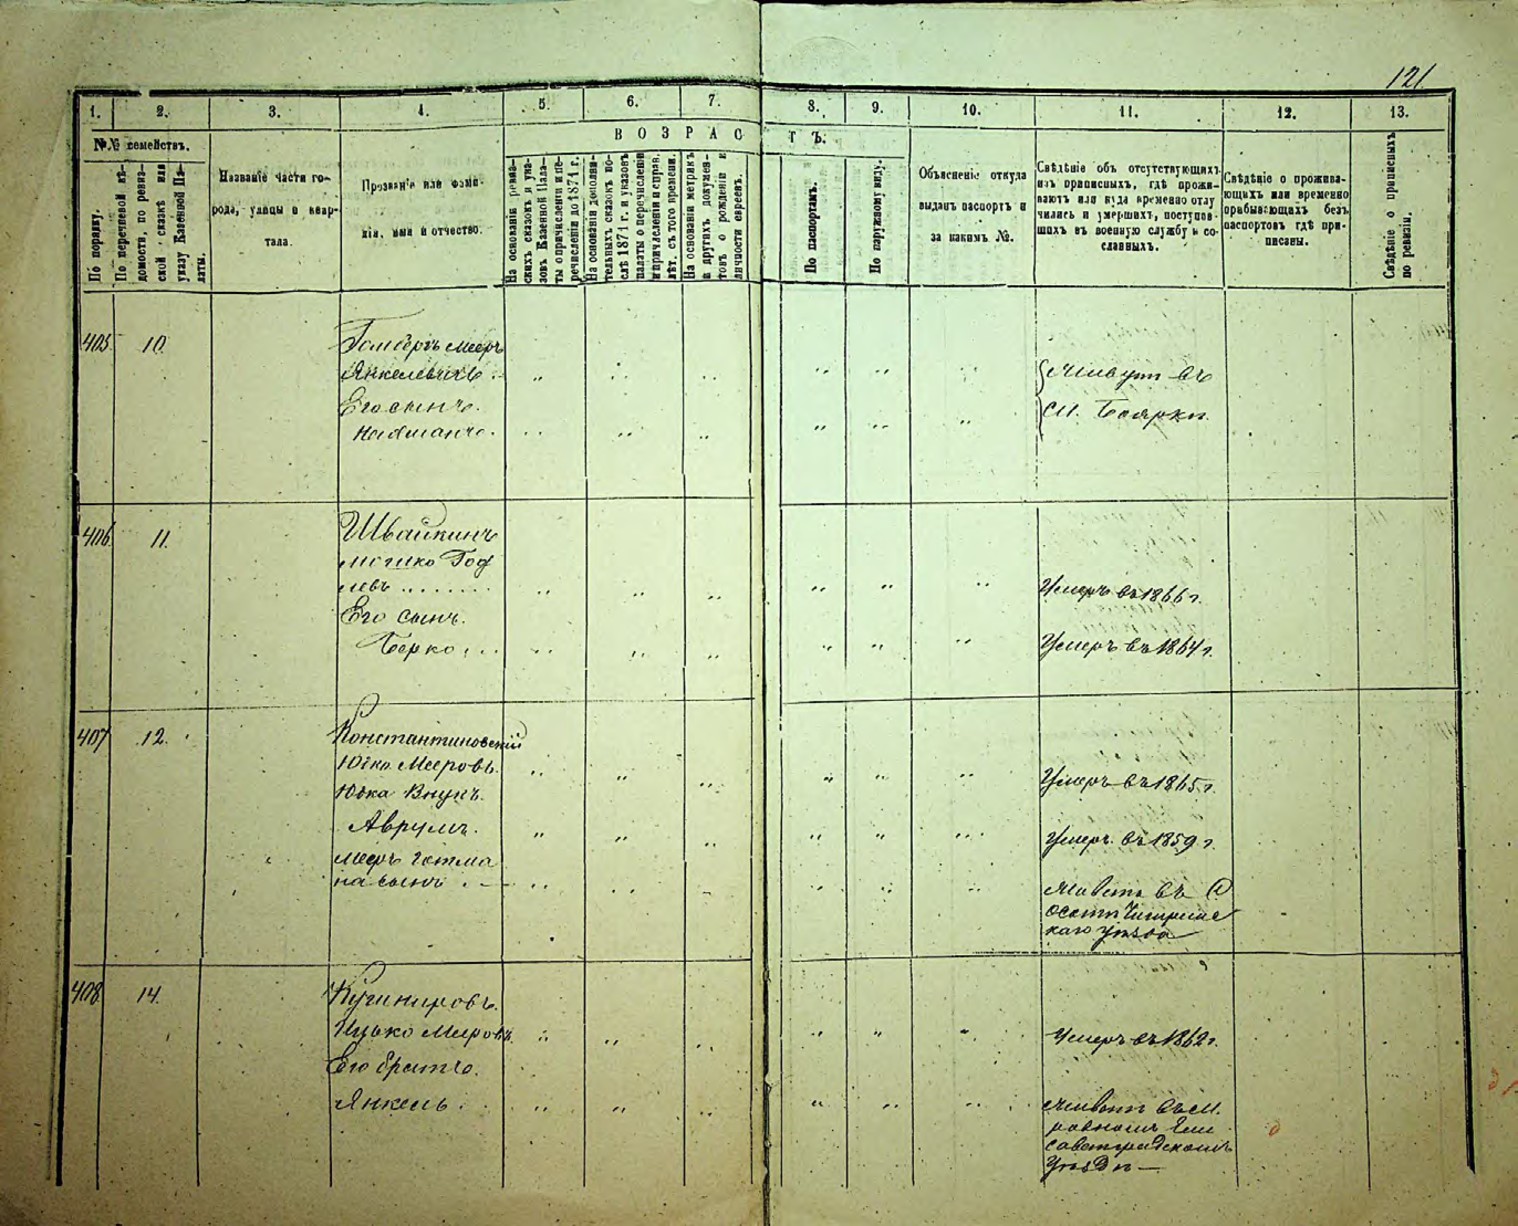 121.
1. 2. 3. 4. 5. 6. 7. 8. 9. 10. 11. 12. 13.
№№ семействъ.
В О З Р А С Т Ъ.
По порядку.
По перечневой вѣ-
домости, по ревиз-
ской сказкѣ или
указу Казенной Па-
латы.
Названіе части го-
рода, улицы и квар-
тала.
Прозваніе или фами-
лія, имя и отчество.
На основаніи ревиз-
скихъ сказокъ и ука-
зовъ Казенной Пала-
ты о причисленіи и пе-
речисленіи до 1871 г.
На основаніи дополни-
тельныхъ сказокъ по-
слѣ 1871 г. и указовъ
палаты о перечисленіи
и причисленіи и справ.
лѣт. съ того времени.
На основаніи метрикъ
и другихъ докумен-
товъ о рожденіи и
личности евреевъ.
По паспортамъ.
По наружному виду.
Объясненіе откуда
выданъ паспортъ и
за какимъ №.
Свѣдѣніе объ отсутствующихъ
изъ приписныхъ, гдѣ прожи-
ваютъ или куда временно отлу
чились и умершихъ, поступив-
шихъ въ военную службу и со-
сланныхъ.
Свѣдѣніе о прожива-
ющихъ или временно
пребывающихъ безъ
паспортовъ гдѣ при-
писаны.
Свѣдѣніе о приписныхъ
по ревизіи.
405. 10. Гомберъ Мееръ
Янкелевичъ
Его сынъ.
Нахманъ.
Живутъ въ
м. Боярки
406. 11. Швайкинъ
Мошко Год
левъ
Умеръ въ 1866 г.
Его сынъ.
Берко
Умеръ въ 1864 г.
407 12. Константиновскій
Юско Мееровъ.
Умеръ въ 1865 г.
Юска Внукъ.
Аврумъ.
Умеръ въ 1859 г.
Мееръ Гетма
на сынъ
Живетъ въ
Чигирин
каго уѣзда
408 14. Кушнировъ.
Ицько Мееровъ
Умеръ въ 1862 г.
Его братъ.
Янкель
Живетъ въ м.
Ровномъ Ели
саветградскомъ
Уѣздѣ